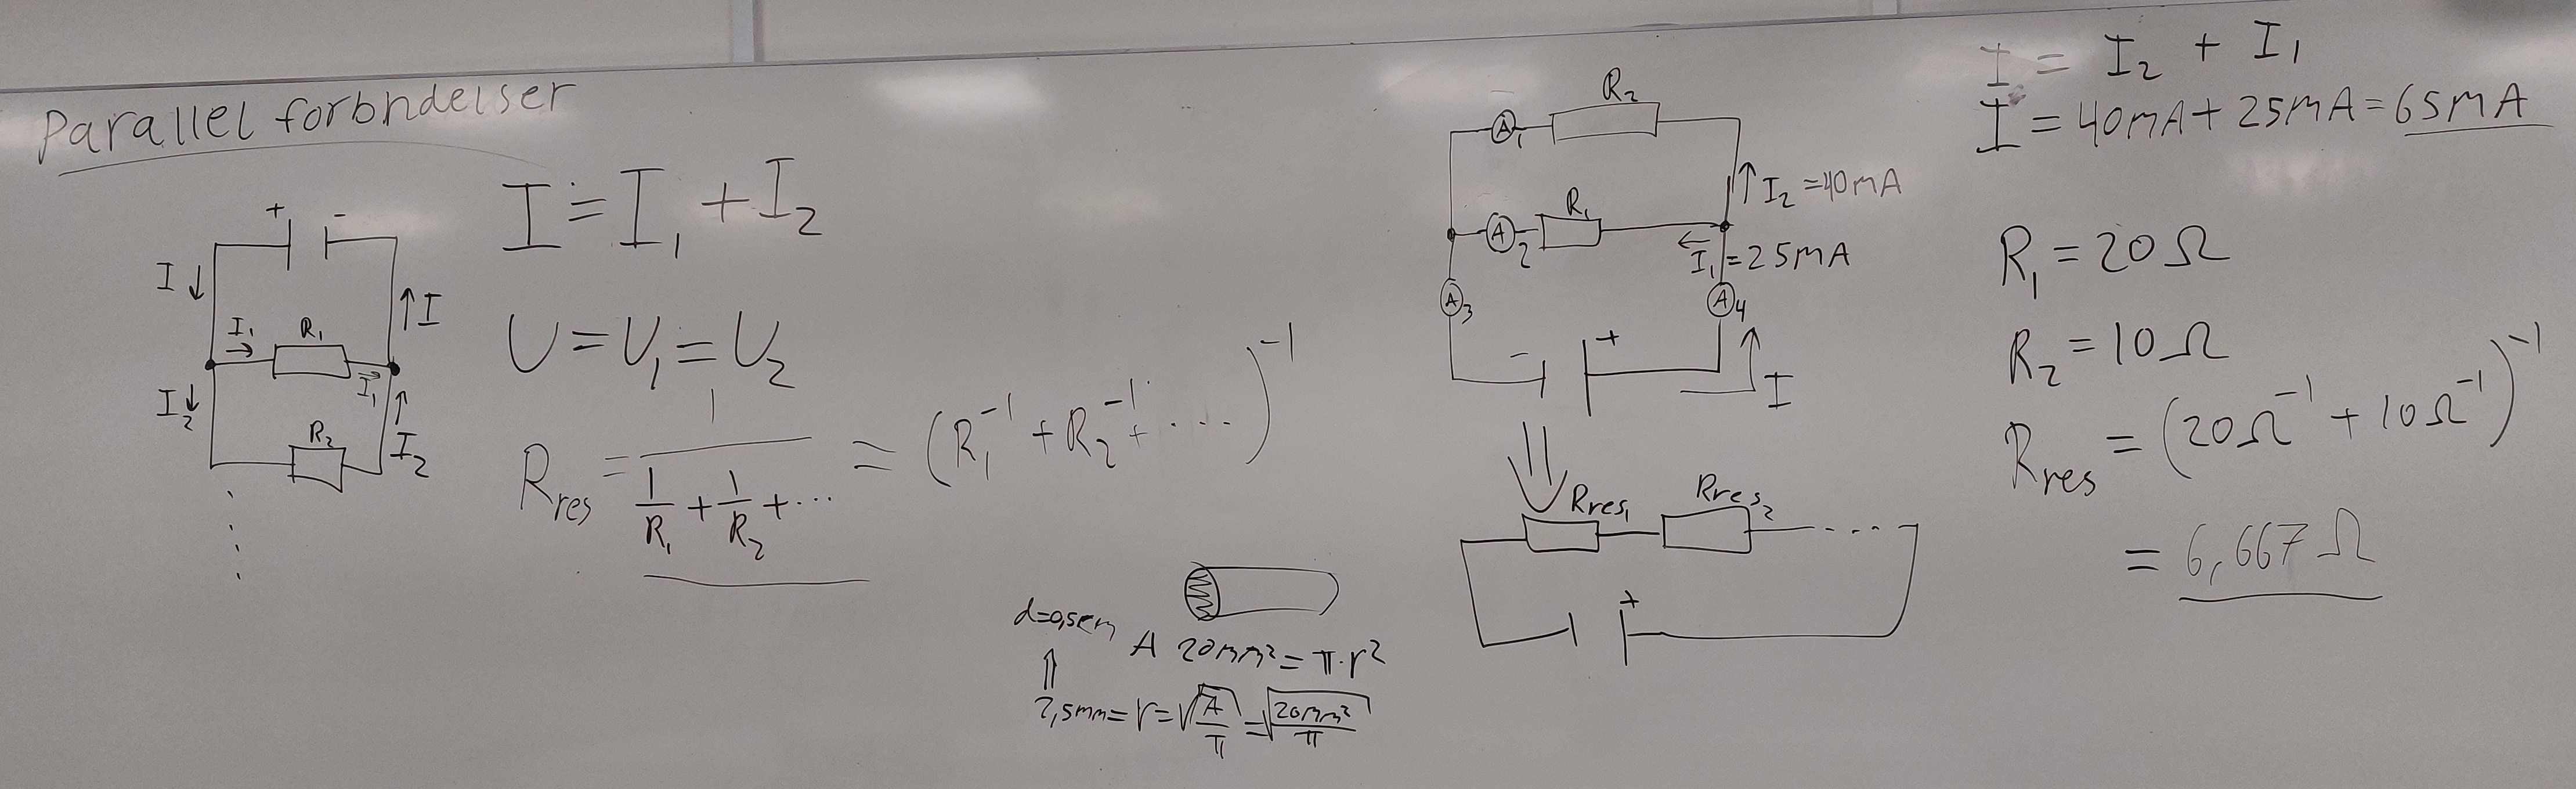 Parallel forbndelser
+ -
I ↓
↑ I
I₁ →
R₁
I₁ →
I₂ ↓
↑ I₂
R₂
I = I₁ + I₂
U = U₁ = U₂
Rres = 1 / (1/R₁ + 1/R₂ + ...) = (R₁⁻¹ + R₂⁻¹ + ....)⁻¹
d=0,5cm
A 20mm² = π·r²
2,5mm = r = √(A/π) = √(20mm²/π)
R₂
A₁
↑ I₂ = 40mA
R₁
A₂
← I₁ = 25mA
A₃
A₄
- +
↑ I
Rres₁ Rres₂
....
+
I = I₂ + I₁
I = 40mA + 25mA = 65mA
R₁ = 20Ω
R₂ = 10Ω
Rres = (20Ω⁻¹ + 10Ω⁻¹)⁻¹
= 6,667Ω